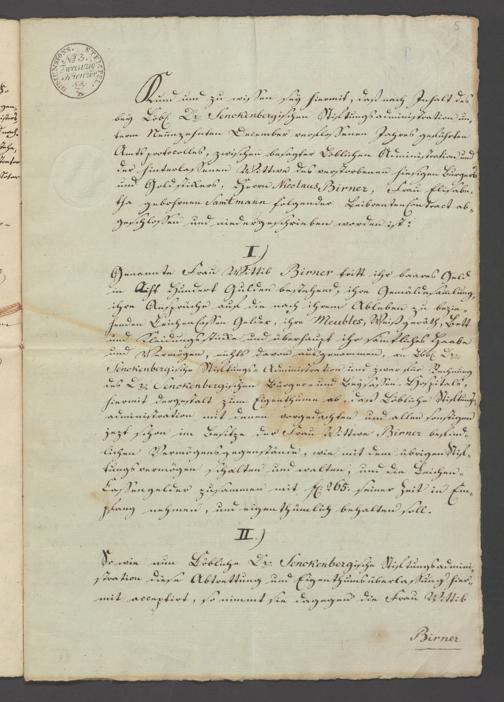 DIMENSIONS. STEMPEL.
No. 3.
Zwanzig
Kreuzer
5
Kund und zu wissen sey hiermit, daß nach Inhalt des
bey Löbl. Dr. Senckenbergischen Stiftungsadministration un-
term Neunzehnten December verflossenen Jahres geführten
Amtsprotocolles, zwischen besagter Löblichen Administration und
der hinterlassenen Wittwe des verstorbenen hiesigen Burgers
und Goldstickers, Herrn Nicolaus Birner, Frau Elisabe-
tha gebohrnen Samtmann folgender Leibrentencontract ab-
geschlossen und niedergeschrieben worden ist:
I.)
Genannte Frau Wittib Birner tritt ihr baares Geld
in Acht Hundert Gulden bestehend, ihre Gemäldesamlung,
ihre Ansprüche auf die nach ihrem Ableben zu bezie-
henden Leichencassen Gelder, ihre Meubles, Weißgeräth, Bett
und Kleidungsstücke und überhaupt ihr sämtliches Haabe
und Vermögen, nichts davon ausgenommen, an Löbl. Dr.
Senckenbergische Stiftungs-Administration und zwar für Rechnung
des Dr. Senckenbergischen Burger- und Beysassen-Hospitals,
hiermit dergestalt zum Eigenthume ab, daß Löbliche Stiftungs-
administration mit denen vorgedachten und allen sonstigen
jezt schon im Besitze der Frau Wittwe Birner befind-
lichen Vermögensgegenstände, wie mit dem übrigen Stif-
tungsvermögen schalten und walten, und die Leichen-
cassengelder zusammen mit f 265. seiner Zeit in Em-
pfang nehmen, und eigenthümlich behalten soll.
II.)
So wie nun Löbliche Dr. Senckenbergische Stiftungsadmini-
stration diese Abtrettung und Eigenthumsüberlassung hier-
mit acceptirt, so nimmt sie dagegen die Frau Wittib
Birner